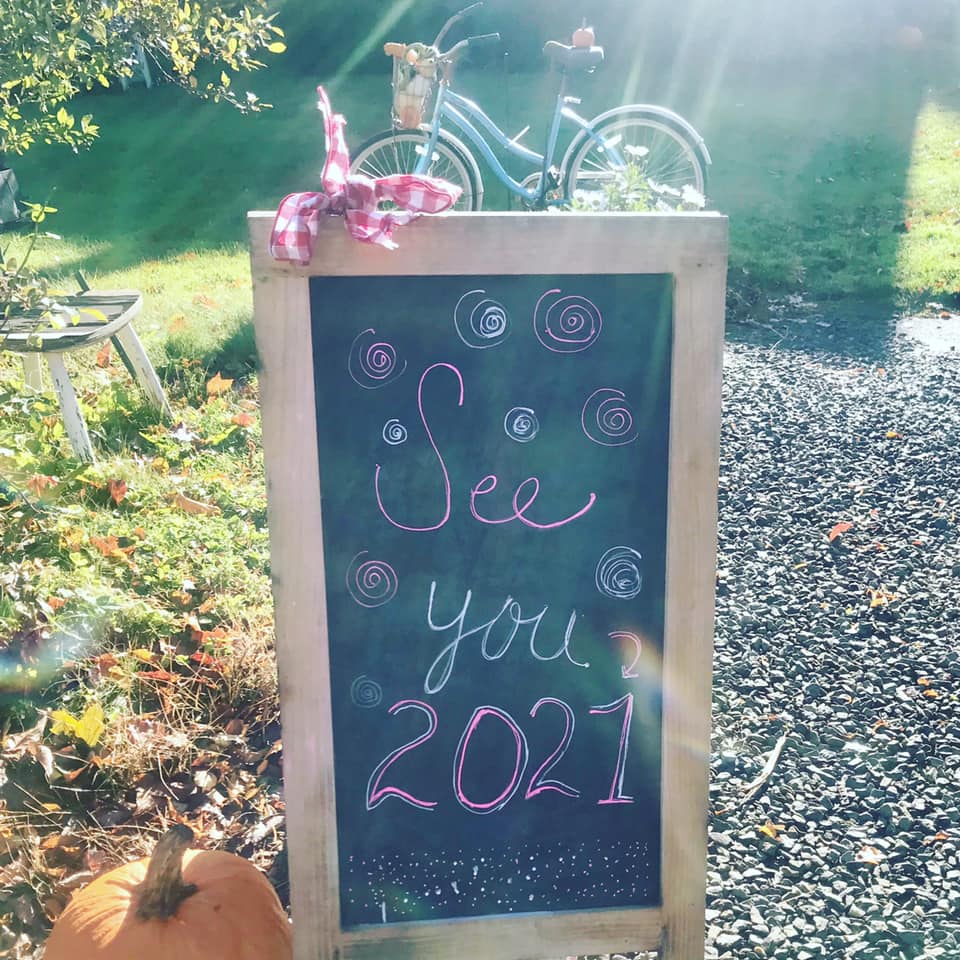 See
you
2021